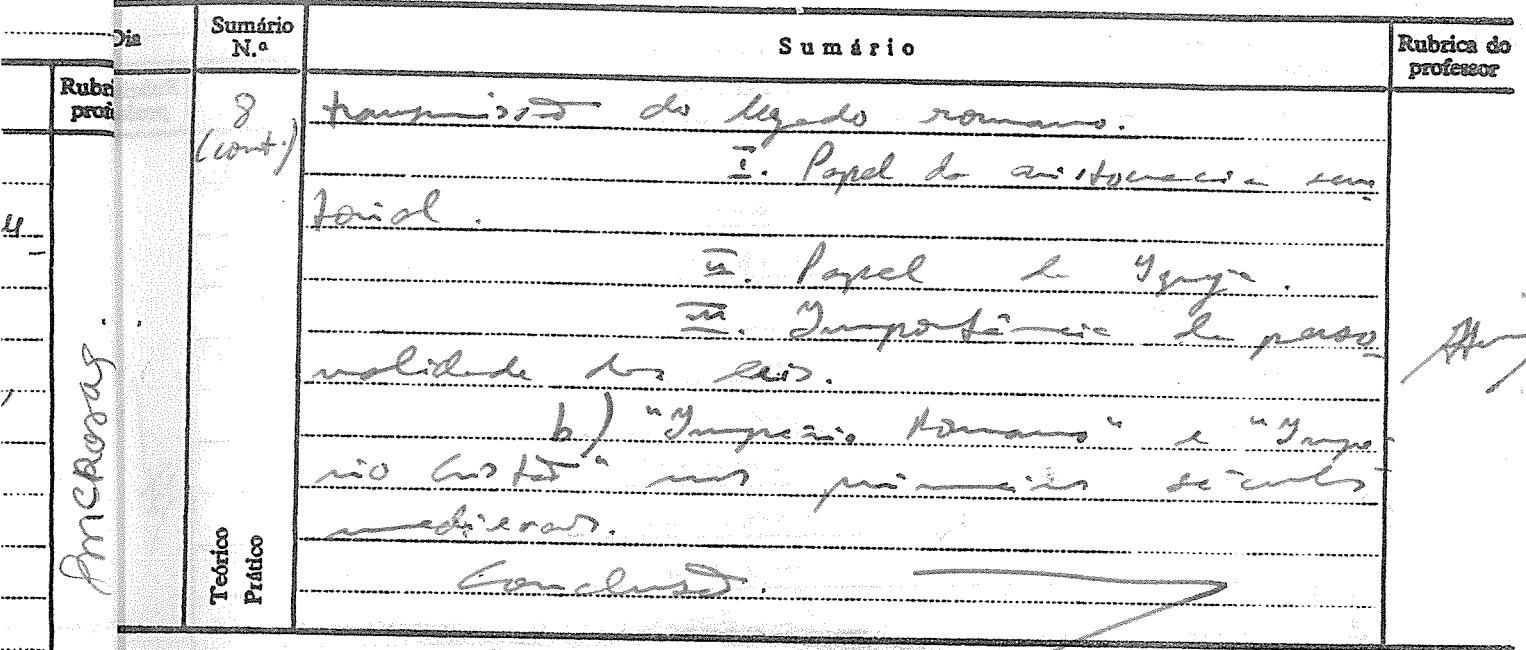 Dia
Sumário N.º
Sumário
Rubrica do professor
8 (cont.)
transmissão do legado romano.
I. Papel da aristocracia sena-
torial.
II. Papel da Igreja.
III. Importância da perso-
nalidade das leis.
b) "Império Romano" e "Impé-
rio Cristão" nos primeiros séculos
medievais.
Conclusão.
Teórico
Prático